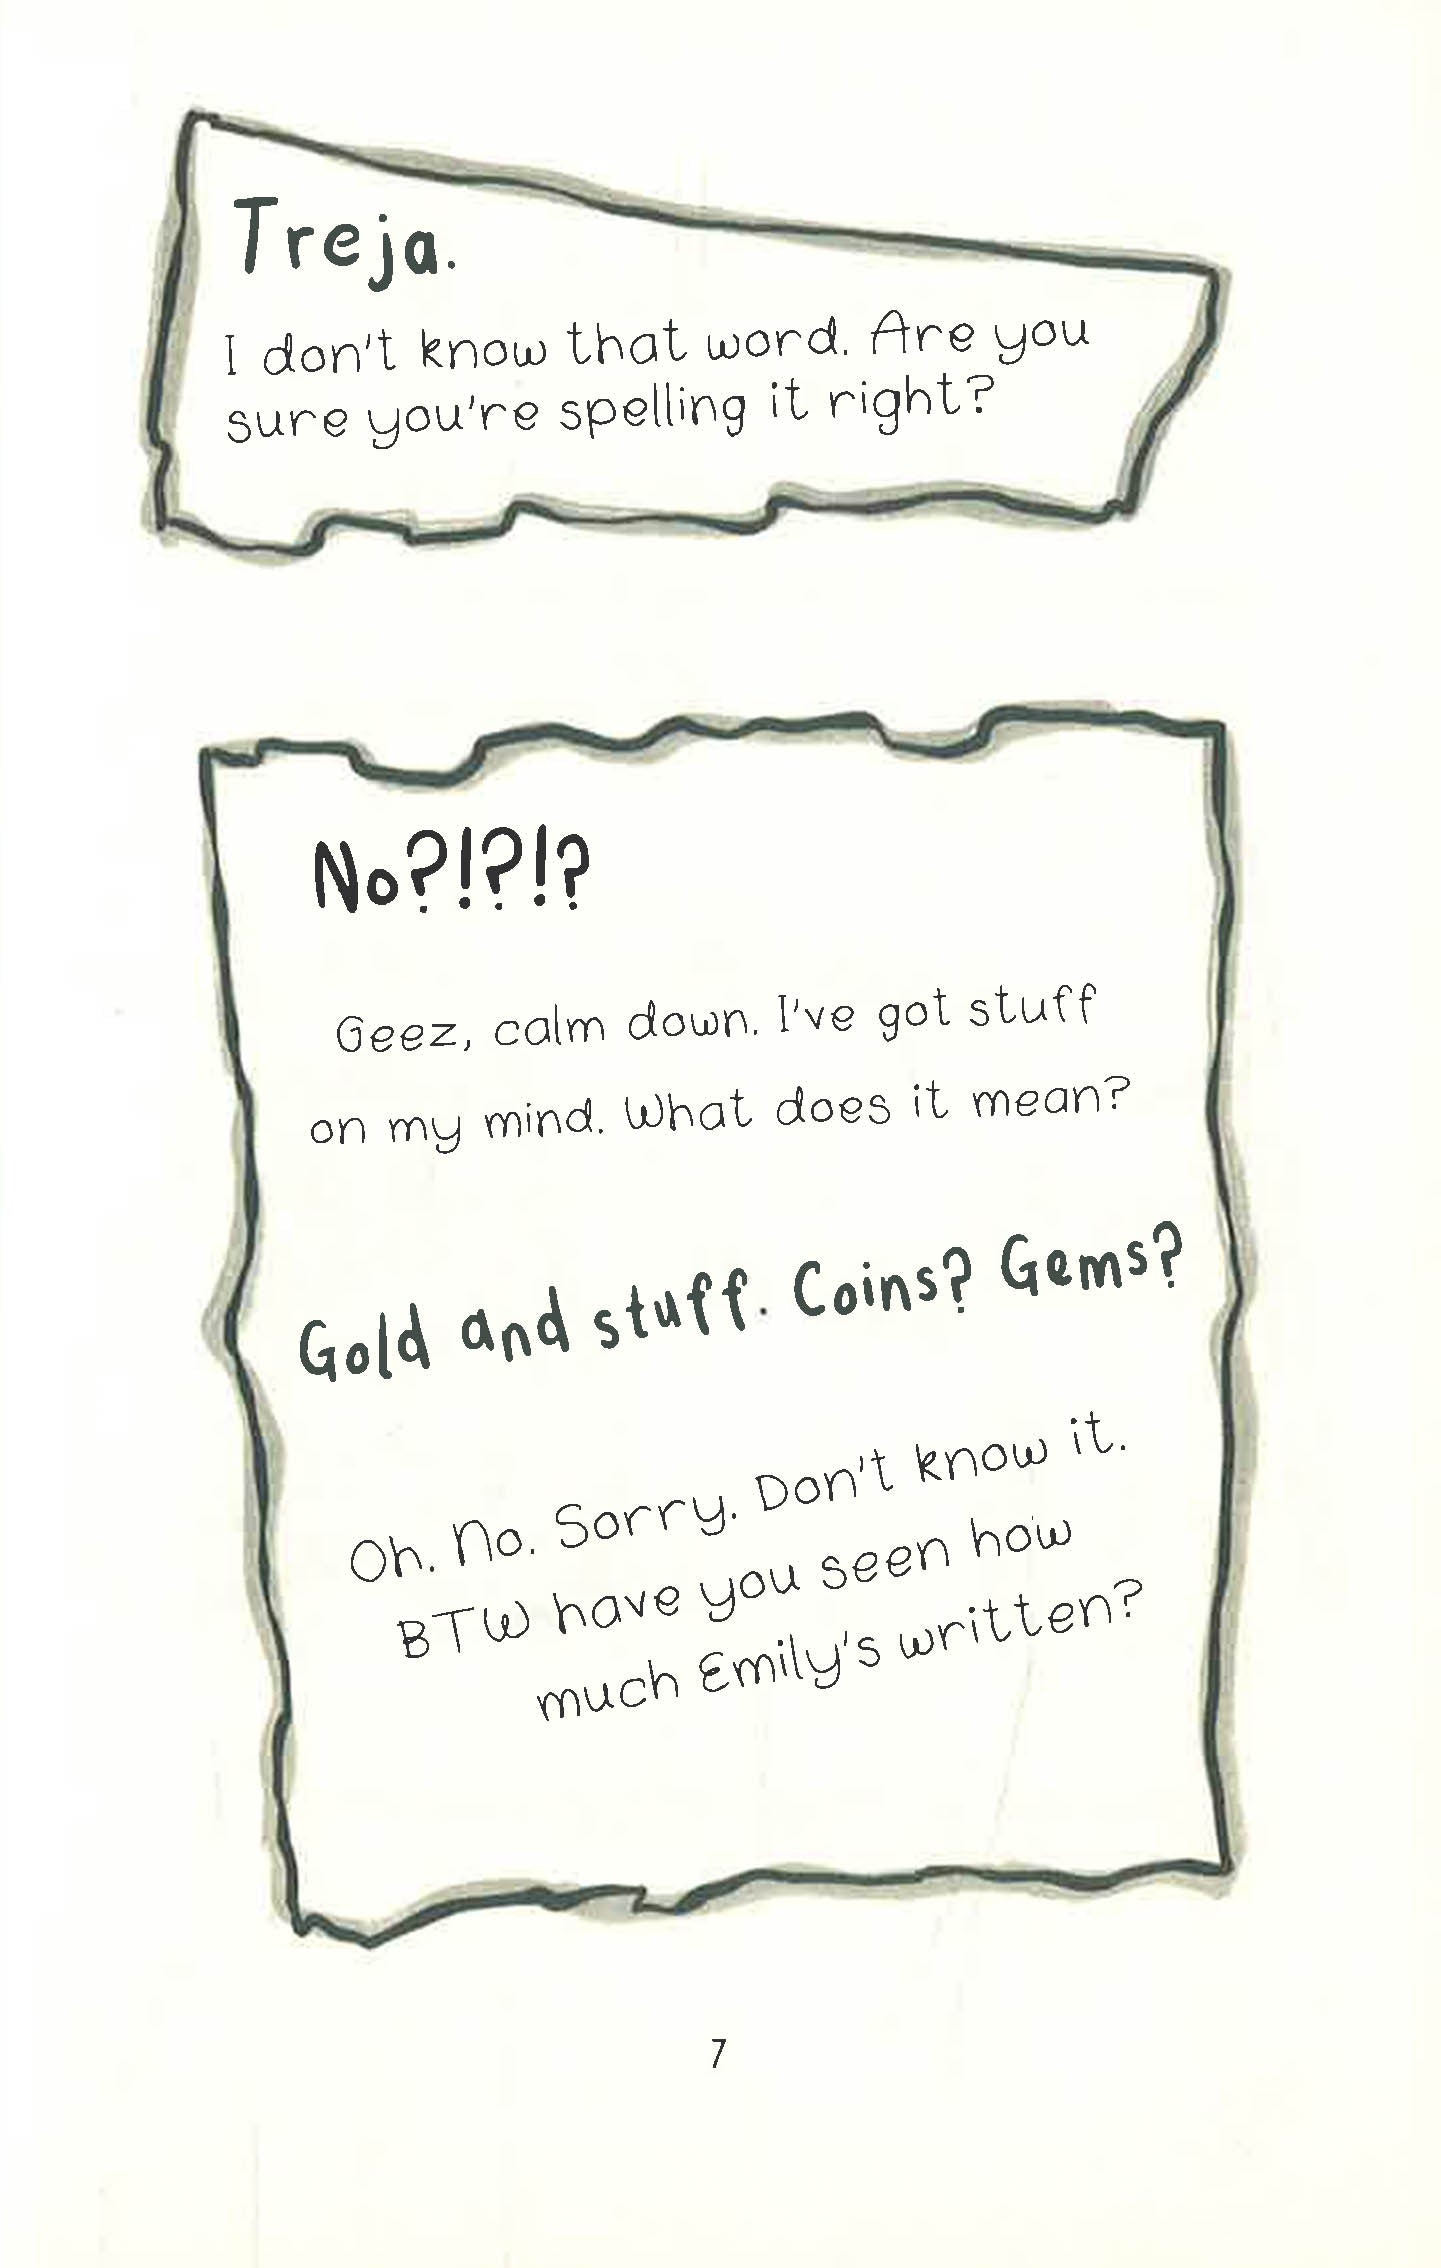 Treja.
I don't know that word. Are you
sure you're spelling it right?
No?!?!?
Geez, calm down. I've got stuff
on my mind. What does it mean?
Gold and stuff. Coins? Gems?
Oh. No. Sorry. Don't know it.
BTW have you seen how
much Emily's written?
7